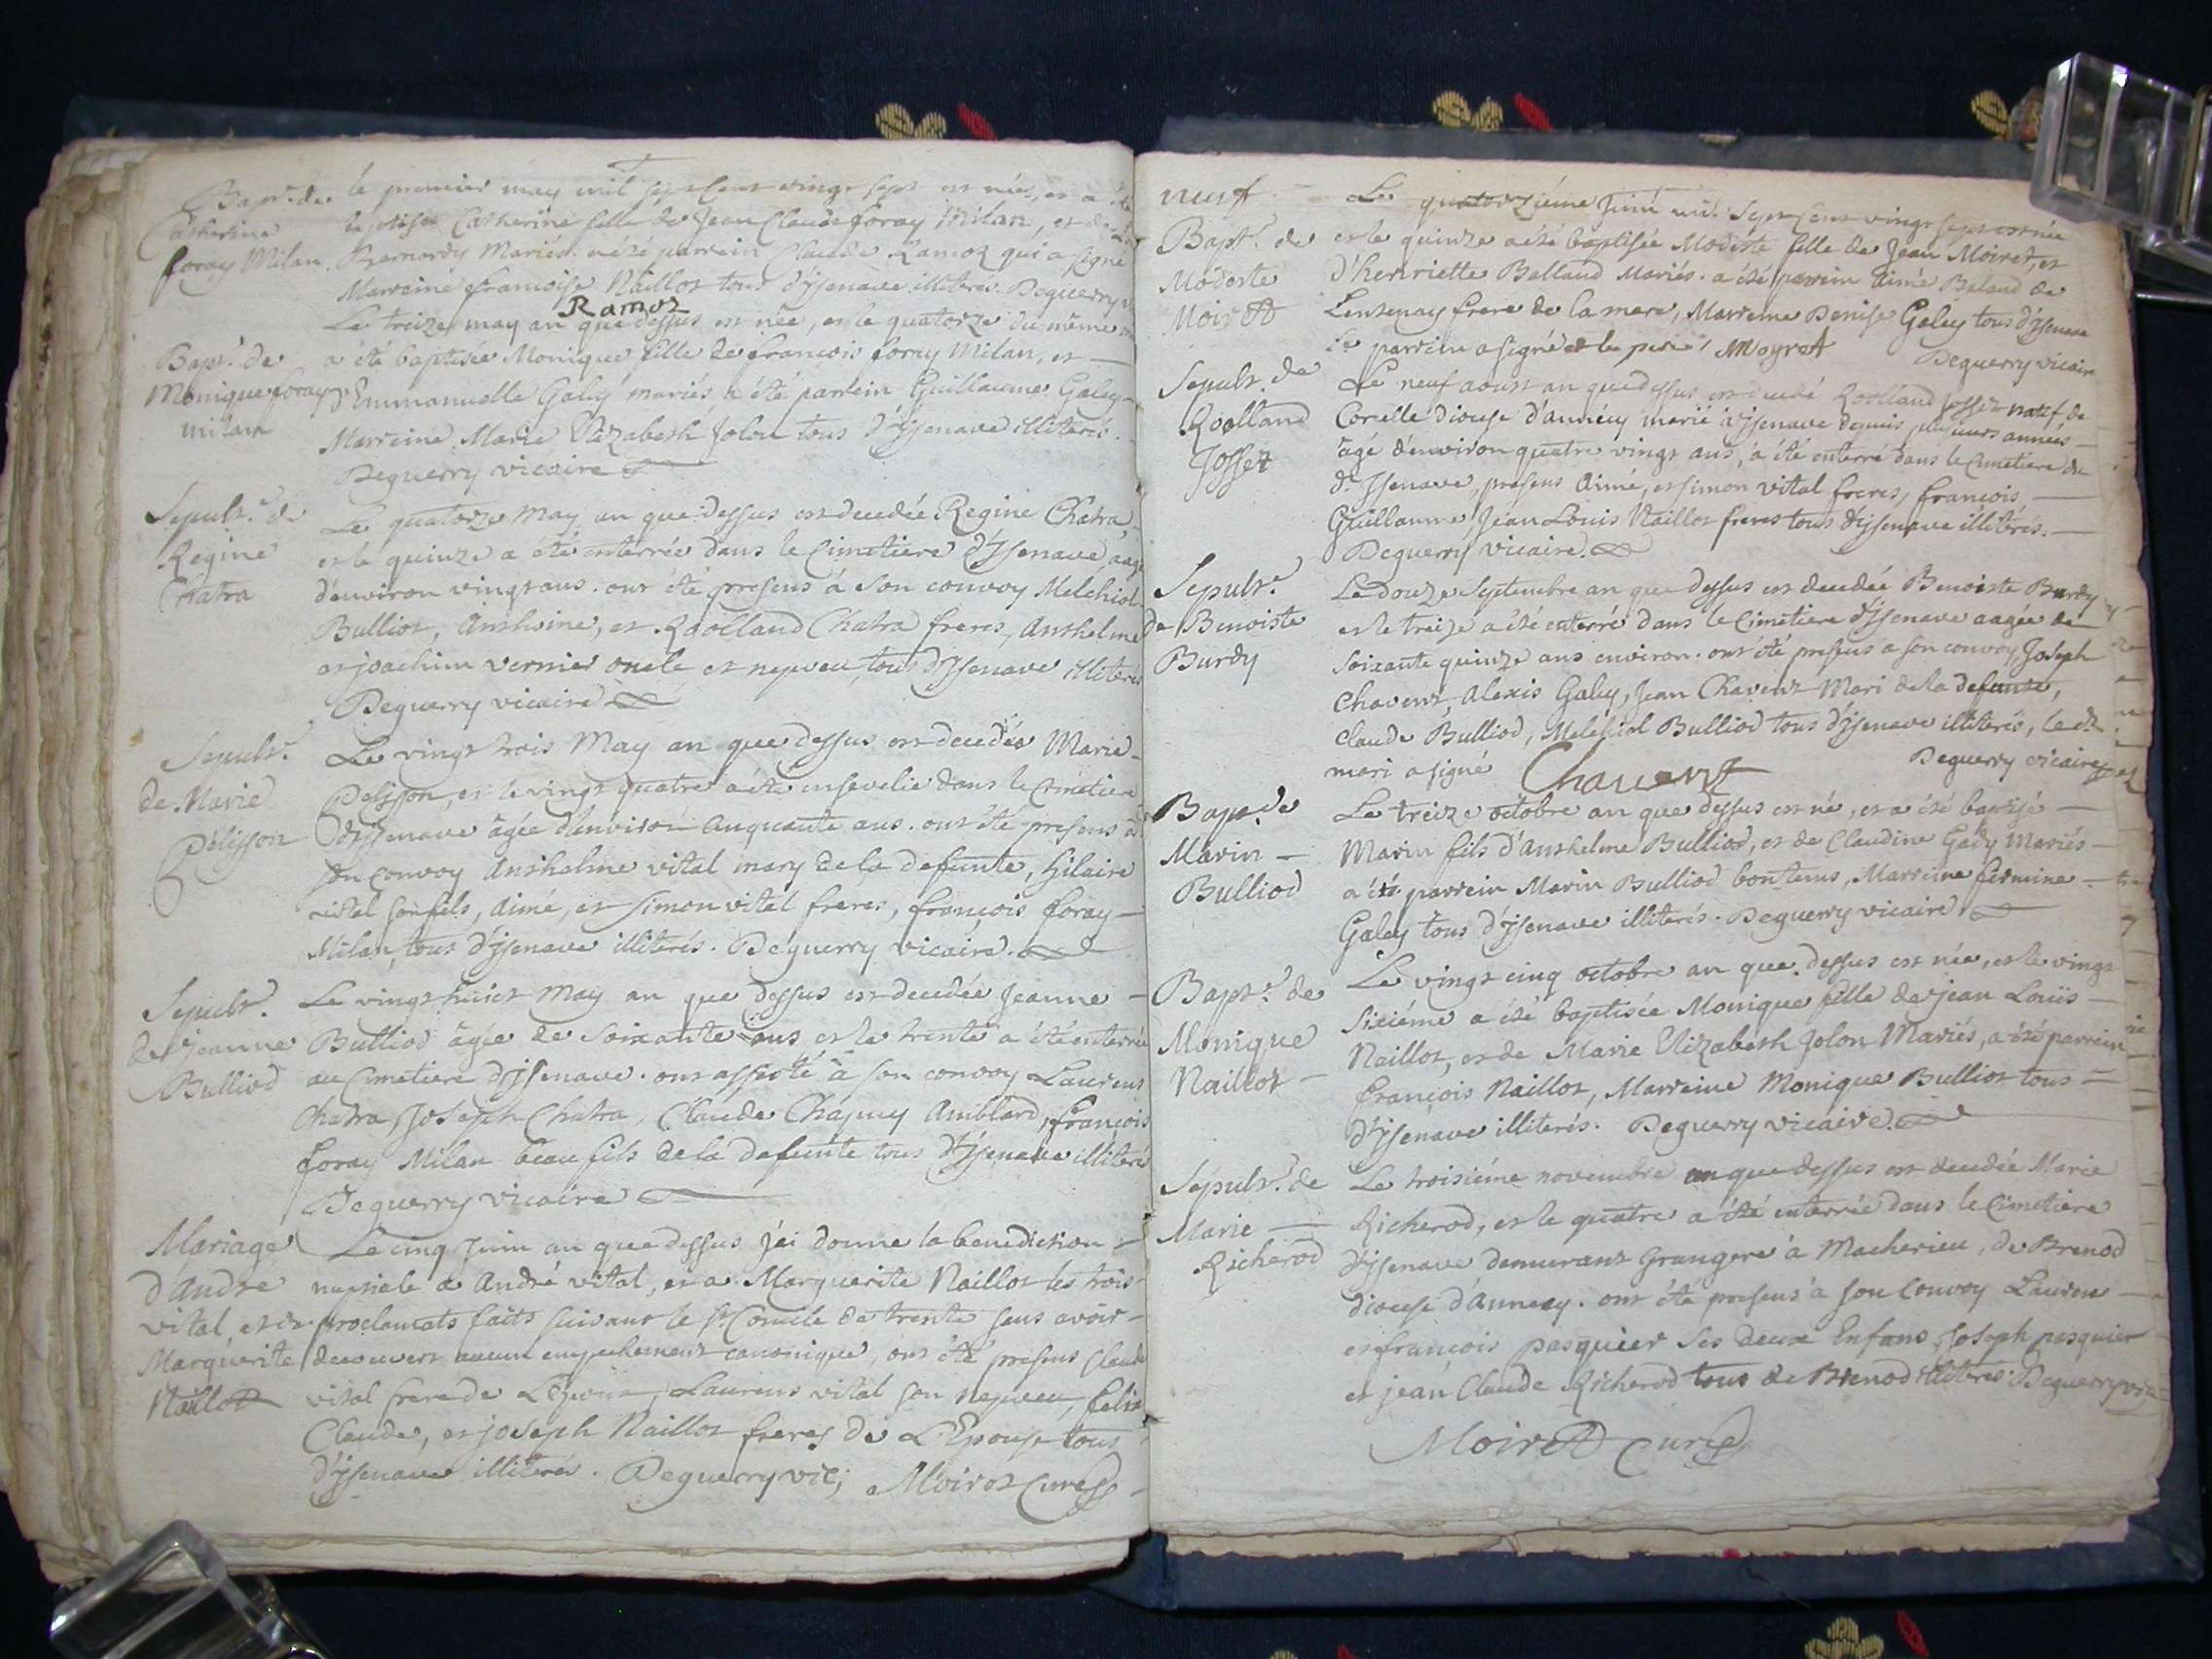 Bapt.e de
Catherine
foray Milan
le premier may mil sept cent vingt sept est née, et a été
baptisée Catherine fille de Jean Claude foray Milan, et de
Bernardy Mariés. a été parrein Claude Ramoz qui a signé
Marreine françoise Naillot tous d'Issenave illiterés. Deguerry
Ramoz
Bapt.e de
Monique foray
milan
Le treize may an que dessus est née, et le quatorze du même
a été baptisée Monique fille de françois foray Milan, et
d'Emmanuelle Galey mariés, a été parrein Guillaume Galey
Marreine Marie Elizabeth Jolon tous d'Issenave illiterés.
Deguerry vicaire
Sepult.e de
Regine
Chatra
Le quatorze May an que dessus est decedée Regine Chatra,
et le quinze a été enterrée dans le Cimetiere d'Issenave, aagé
d'environ vingt ans. ont été presens à son convoy Melchiol
Bulliot, Anthoine, et Roolland Chatra freres, Anthelme
et joachim vernier oncle et nepveu, tous d'Issenave illiterés
Deguerry vicaire
Sepult.e
de Marie
Pelisson
Le vingt trois May an que dessus est decedée Marie
Pelisson, et le vingt quatre a été ensevelie dans le Cimetiere
d'Issenave âgée d'environ cinquante ans. ont été presens à
son convoy Anthelme vital mary de la defunte, hilaire
vital son fils, aimé, et simon vital freres, françois foray
Milan, tous d'Issenave illiterés. Deguerry vicaire.
Sepult.e
de jeanne
Bulliod
Le vingt huict May an que dessus est decedée Jeanne
Bulliod âgée de soixante ans et le trente a été enterrée
au Cimetiere d'Issenave. ont assisté à son convoy Laurent
Chatra, Joseph Chatra, Claude Chapuy Amblard, françois
foray Milan beau fils de la defunte tous d'Issenave illiterés
Deguerry vicaire
Mariage
d'André
vital, et de
Marguerite
Naillot
Le cinq Juin an que dessus j'ai donné la benediction
nuptiale a André vital, et a Marguerite Naillot les trois
proclamats faits suivant le St Concile de trente sans avoir
decouvert aucun empechement canonique, ont été presens Claude
vital frere de L'Epoux, Laurens vital son nepveu, felix
Claude, et joseph Naillot freres de L'Epouse tous
d'Issenave illiterés. Deguerry vic; Moiret Curé
neuf
Bapt.e de
Modeste
Moiret
Le quatorziéme Juin mil sept cent vingt sept est née
et le quinze a été baptisée Modeste fille de Jean Moiret, et
d'henriette Balland Mariés. a été parrein Aimé Baland de
Lentenay frere de la mere, Marreine Denise Galey tous d'Issenave
le parrein a signé et le pere / Moyret Deguerry vicaire
Sepult.e de
Roolland
Josset
Le neuf aoust an que dessus est decedé Roolland Josset natif de
Corcelle diocese d'annecy marié à Issenave depuis plusieurs années
âgé d'environ quatre vingt ans, a été enterré dans le Cimetiere du
dt Issenave, presens Aimé, et simon vital freres, françois,
Guillaume, Jean Louis Naillot freres tous d'Issenave illiterés.
Deguerry vicaire.
Sepult.e
de Benoiste
Burdy
Le douze Septembre an que dessus est decedée Benoiste Burdy
et le treize a été enterré dans le Cimetiere d'Issenave aagée de
soixante quinze ans environ. ont été presens a son convoy, Joseph
Chavent, Alexis Galey, Jean Chavent Mari de la defunte,
claude Bulliod, Melchiol Bulliod tous d'Issenave illiterés, le dt
mari a signé Chavent Deguerry vicaire
Bapt.e de
Marin
Bulliod
Le treize octobre an que dessus est né, et a été baptisé
Marin fils d'Anthelme Bulliod, et de Claudine Gady Mariés
a été parrein Marin Bulliod bontems, Marreine fermine
Galey tous d'Issenave illiterés. Deguerry vicaire
Bapt.e de
Monique
Naillot
Le vingt cinq octobre an que dessus est née, et le vingt
sixiéme a été baptisée Monique fille de jean Louis
Naillot, et de Marie Elizabeth Jolon Mariés, a été parrein
françois Naillot, Marreine Monique Bulliot tous
d'Issenave illiterés. Deguerry vicaire.
Sepult.e de
Marie
Richerod
Le troisiéme novembre an que dessus est decedée Marie
Richerod, et le quatre a été enterrée dans le Cimetiere
d'Issenave demeurant Grangere à Macherieu, de Brenod
diocese d'Annecy. ont été presens à son Convoy Laurent
et françois pasquier ses deux Enfans, Joseph pasquier
et jean Claude Richerod tous de Brenod illiterés. Deguerry vic
Moiret Curé